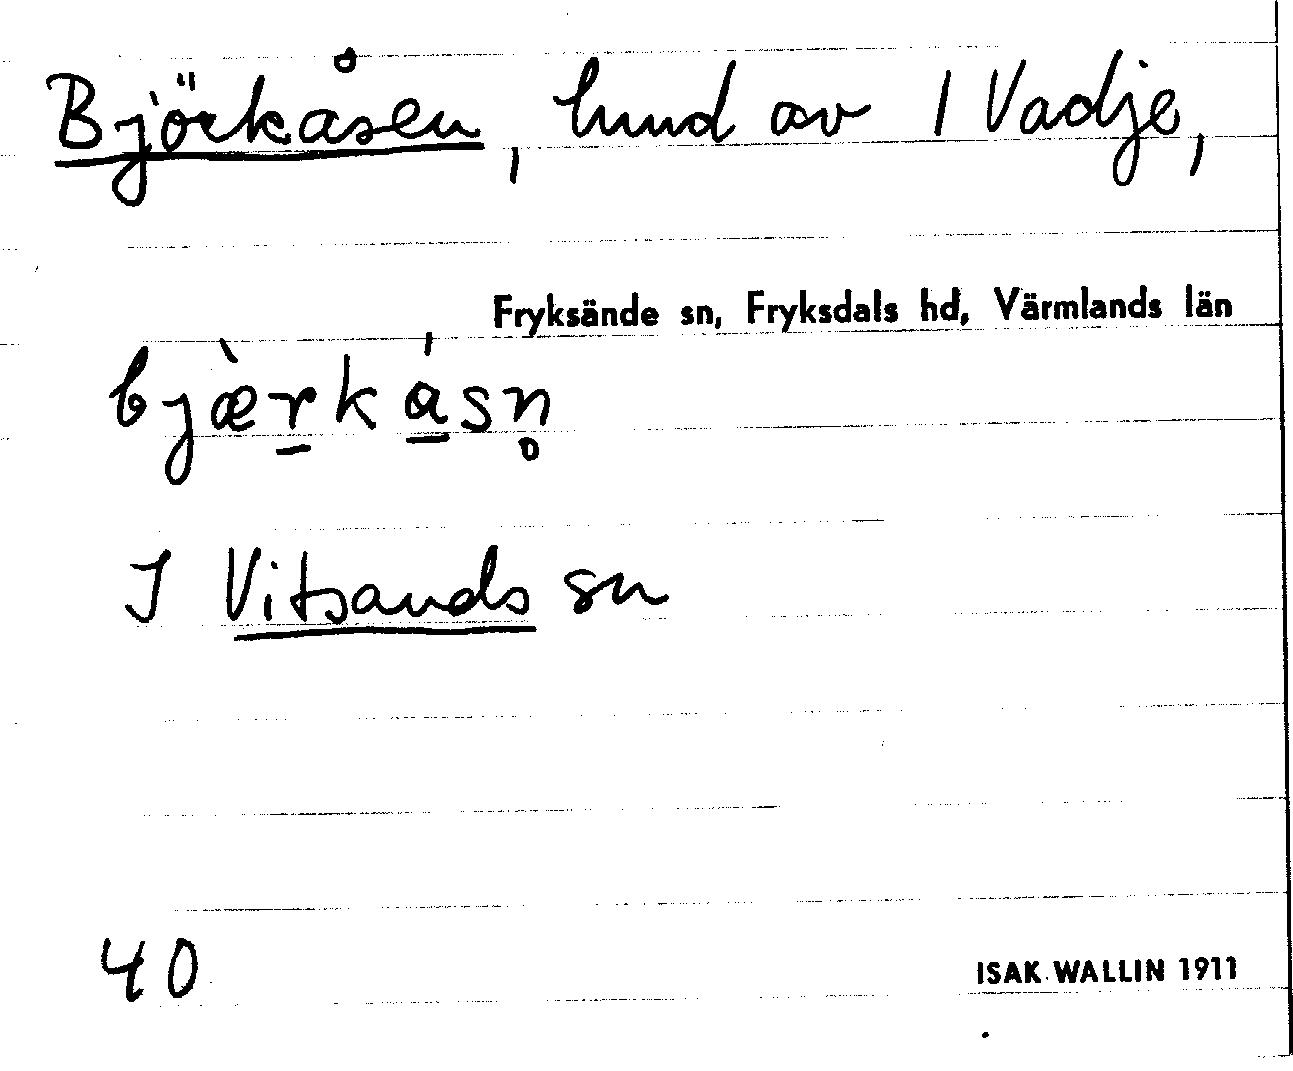 Björkåsen, lund av 1 Vadje,
Fryksände sn, Fryksdals hd, Värmlands län
bjæ̀rkásn̥
I Vitsands sn
40
ISAK WALLIN 1911